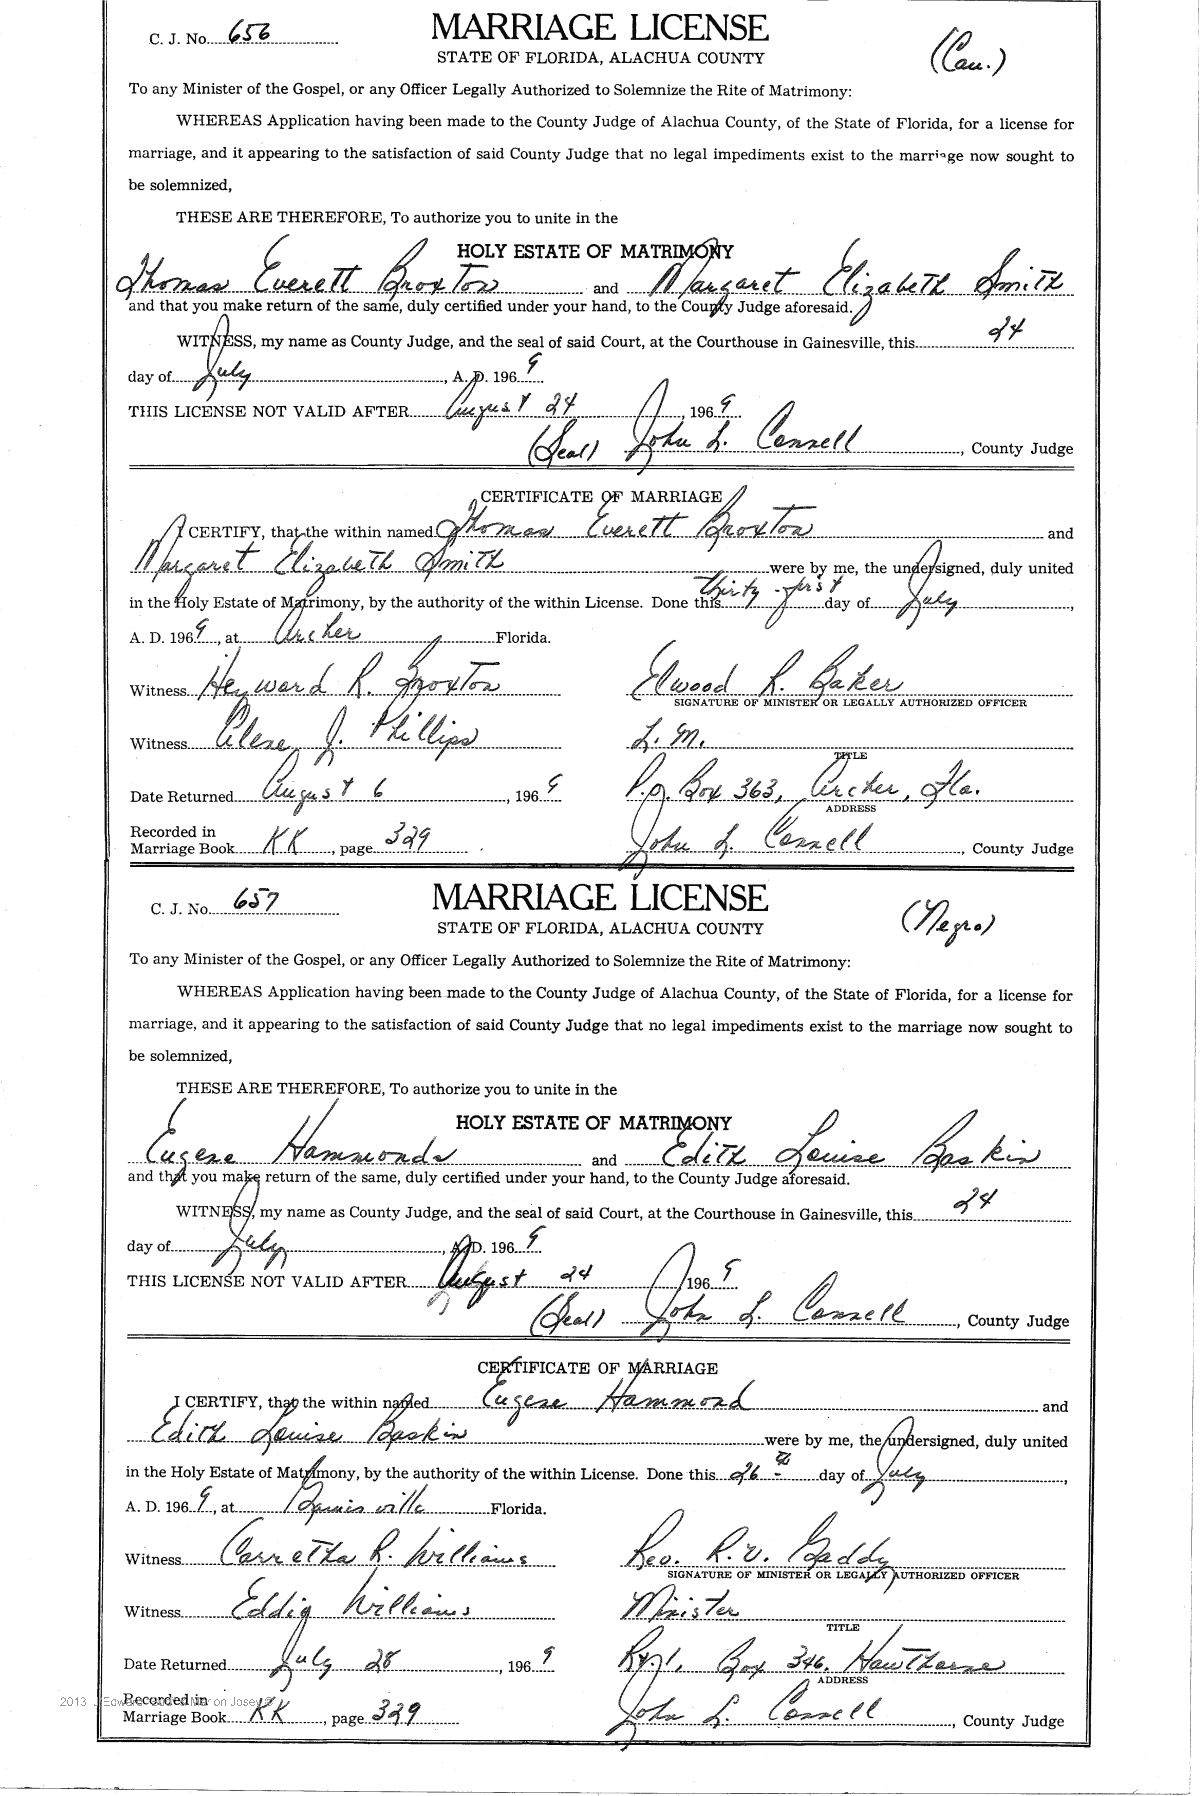 C. J. No. 656
MARRIAGE LICENSE
STATE OF FLORIDA, ALACHUA COUNTY
(Cau.)
To any Minister of the Gospel, or any Officer Legally Authorized to Solemnize the Rite of Matrimony:
WHEREAS Application having been made to the County Judge of Alachua County, of the State of Florida, for a license for
marriage, and it appearing to the satisfaction of said County Judge that no legal impediments exist to the marriage now sought to
be solemnized,
THESE ARE THEREFORE, To authorize you to unite in the
HOLY ESTATE OF MATRIMONY
Thomas Everett Broxton and Margaret Elizabeth Smith
and that you make return of the same, duly certified under your hand, to the County Judge aforesaid.
WITNESS, my name as County Judge, and the seal of said Court, at the Courthouse in Gainesville, this 24
day of July, A. D. 1969
THIS LICENSE NOT VALID AFTER August 24, 1969
(Seal) John L. Connell, County Judge
CERTIFICATE OF MARRIAGE
I CERTIFY, that the within named Thomas Everett Broxton and
Margaret Elizabeth Smith were by me, the undersigned, duly united
in the Holy Estate of Matrimony, by the authority of the within License. Done this thirty-first day of July,
A. D. 1969, at Archer Florida.
Witness Heyward R. Broxton Elwood R. Baker
SIGNATURE OF MINISTER OR LEGALLY AUTHORIZED OFFICER
Witness Clene J. Phillips L. M.
TITLE
Date Returned August 6, 1969 P.o. Box 363, Archer, Fla.
ADDRESS
Recorded in
Marriage Book KK, page 329 John L. Connell, County Judge
C. J. No. 657
MARRIAGE LICENSE
STATE OF FLORIDA, ALACHUA COUNTY
(Negro)
To any Minister of the Gospel, or any Officer Legally Authorized to Solemnize the Rite of Matrimony:
WHEREAS Application having been made to the County Judge of Alachua County, of the State of Florida, for a license for
marriage, and it appearing to the satisfaction of said County Judge that no legal impediments exist to the marriage now sought to
be solemnized,
THESE ARE THEREFORE, To authorize you to unite in the
HOLY ESTATE OF MATRIMONY
Eugene Hammonds and Edith Louise Baskin
and that you make return of the same, duly certified under your hand, to the County Judge aforesaid.
WITNESS, my name as County Judge, and the seal of said Court, at the Courthouse in Gainesville, this 24
day of July, A. D. 1969
THIS LICENSE NOT VALID AFTER August 24 1969
(Seal) John L. Connell, County Judge
CERTIFICATE OF MARRIAGE
I CERTIFY, that the within named Eugene Hammond and
Edith Louise Baskin were by me, the undersigned, duly united
in the Holy Estate of Matrimony, by the authority of the within License. Done this 26th day of July,
A. D. 1969, at Gainisville Florida.
Witness Carretha R. Williams Rev. R. V. Gaddy
SIGNATURE OF MINISTER OR LEGALLY AUTHORIZED OFFICER
Witness Eddig Williams Minister
TITLE
Date Returned July 28, 1969 Rt. 1, Box 346, Hawthorne
ADDRESS
2013
Recorded in
Marriage Book KK, page 329 John L. Connell, County Judge